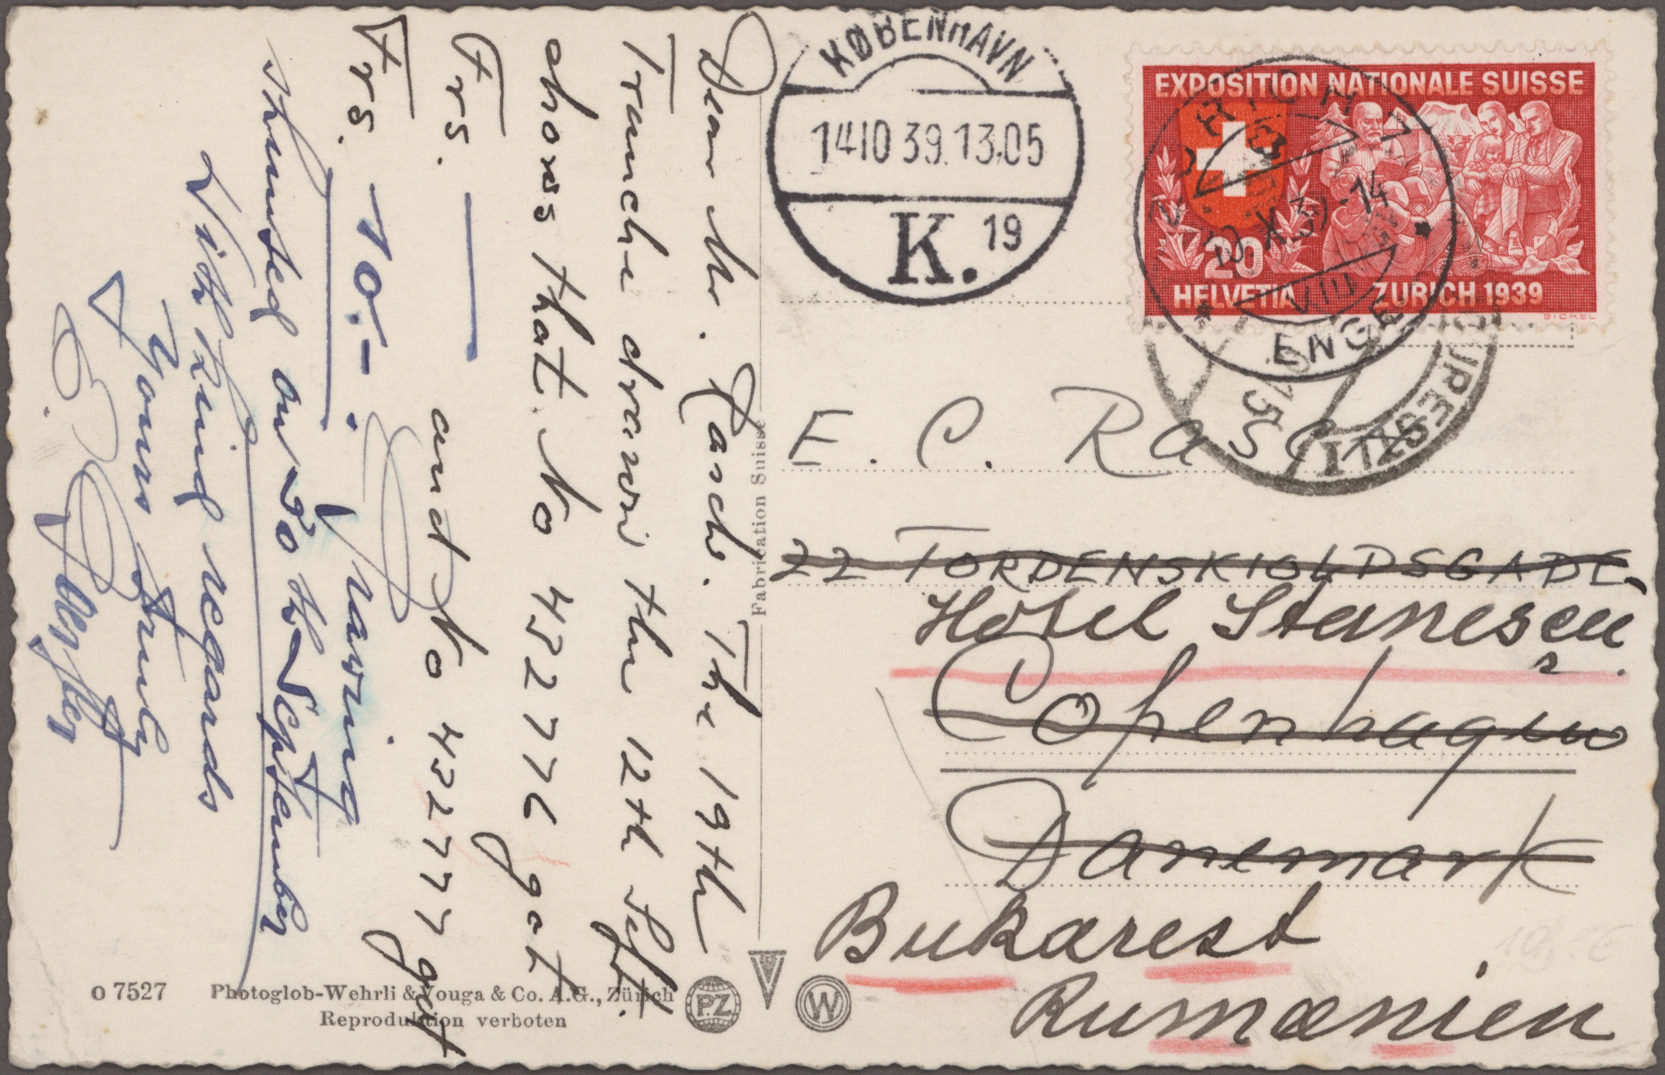 Dear Mr. Rasch. The 19th
Tranche drawn the 12th Sept.
shows that No 432776 gets
Frs. — and No 432777 get
Frs. 10.-. Drawing
shunted on 30th September
With kind regards
Yours truly
E.
o 7527
Photoglob-Wehrli & Vouga & Co. A.G., Zürich
Reproduktion verboten
Fabrication Suisse
PZ
W
KØBENHAVN
14 10 39. 13.05
K. 19
EXPOSITION NATIONALE SUISSE
20
HELVETIA ZURICH 1939
BICKEL
ZÜRICH 7
10.X.39-14
VIII
ENGE
UJPEST
E. C. RaSCh
22 TORDENSKIOLDSGADE
Hotel Stanescu
Copenhague
Danemark
Bukarest
Rumænien